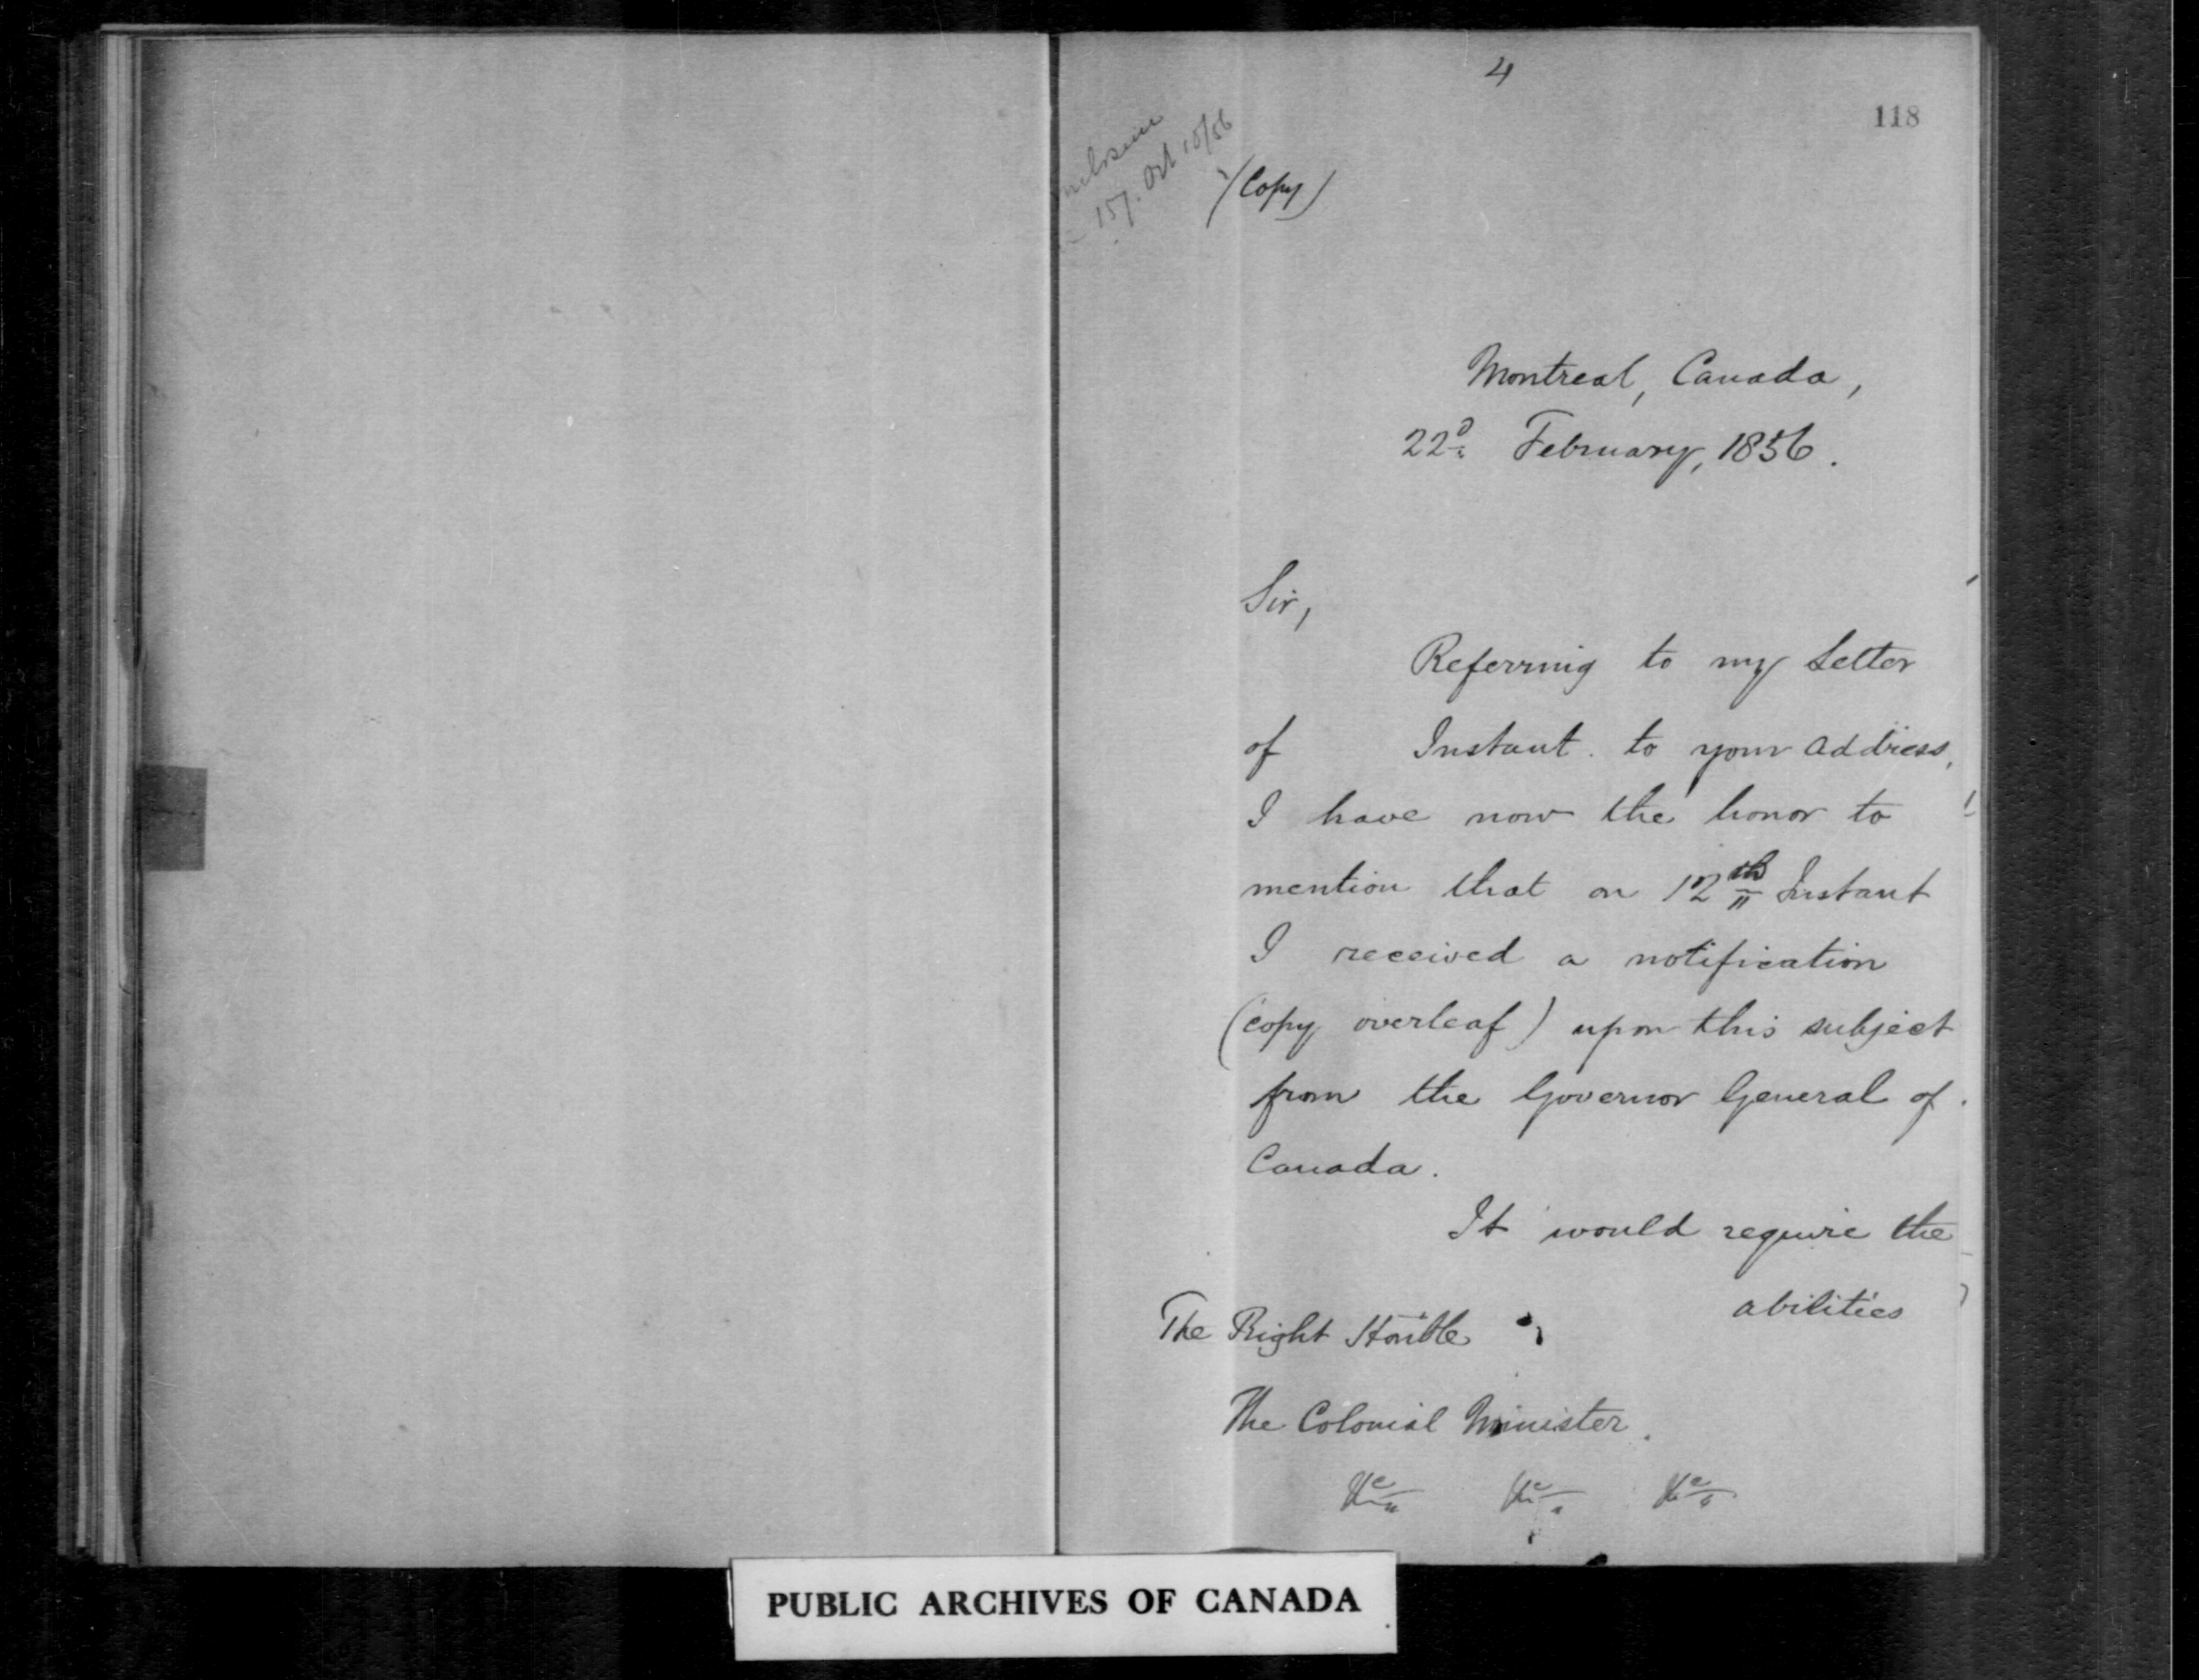 4
118
157. Oct 10/56
(Copy)
Montreal, Canada,
22d February, 1856.
Sir,
Referring to my Letter
of Instant. to your address,
I have now the honor to
mention that on 12th Instant
I received a notification
(copy overleaf) upon this subject
from the Governor General of
Canada.
It would require the
abilities
The Right Honble
The Colonial Minister.
&c &c &c
PUBLIC ARCHIVES OF CANADA